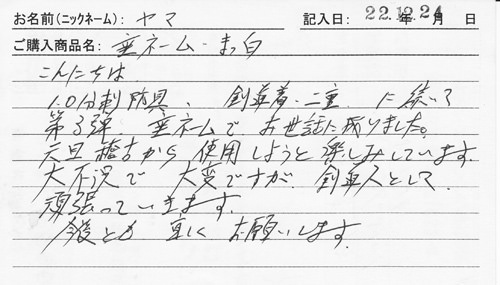 お名前(ニックネーム): ヤマ 記入日: 22.12.24 年 月 日
ご購入商品名: 垂ネーム・まっ白
こんにちは
1.0分刺防具、剣道着・二重 に続いて
第3弾 垂ネームで お世話に成りました。
元旦稽古から 使用しようと楽しみしています。
大不況で 大変ですが、剣道人として
頑張っていきます。
今後とも 宜しく お願いします。